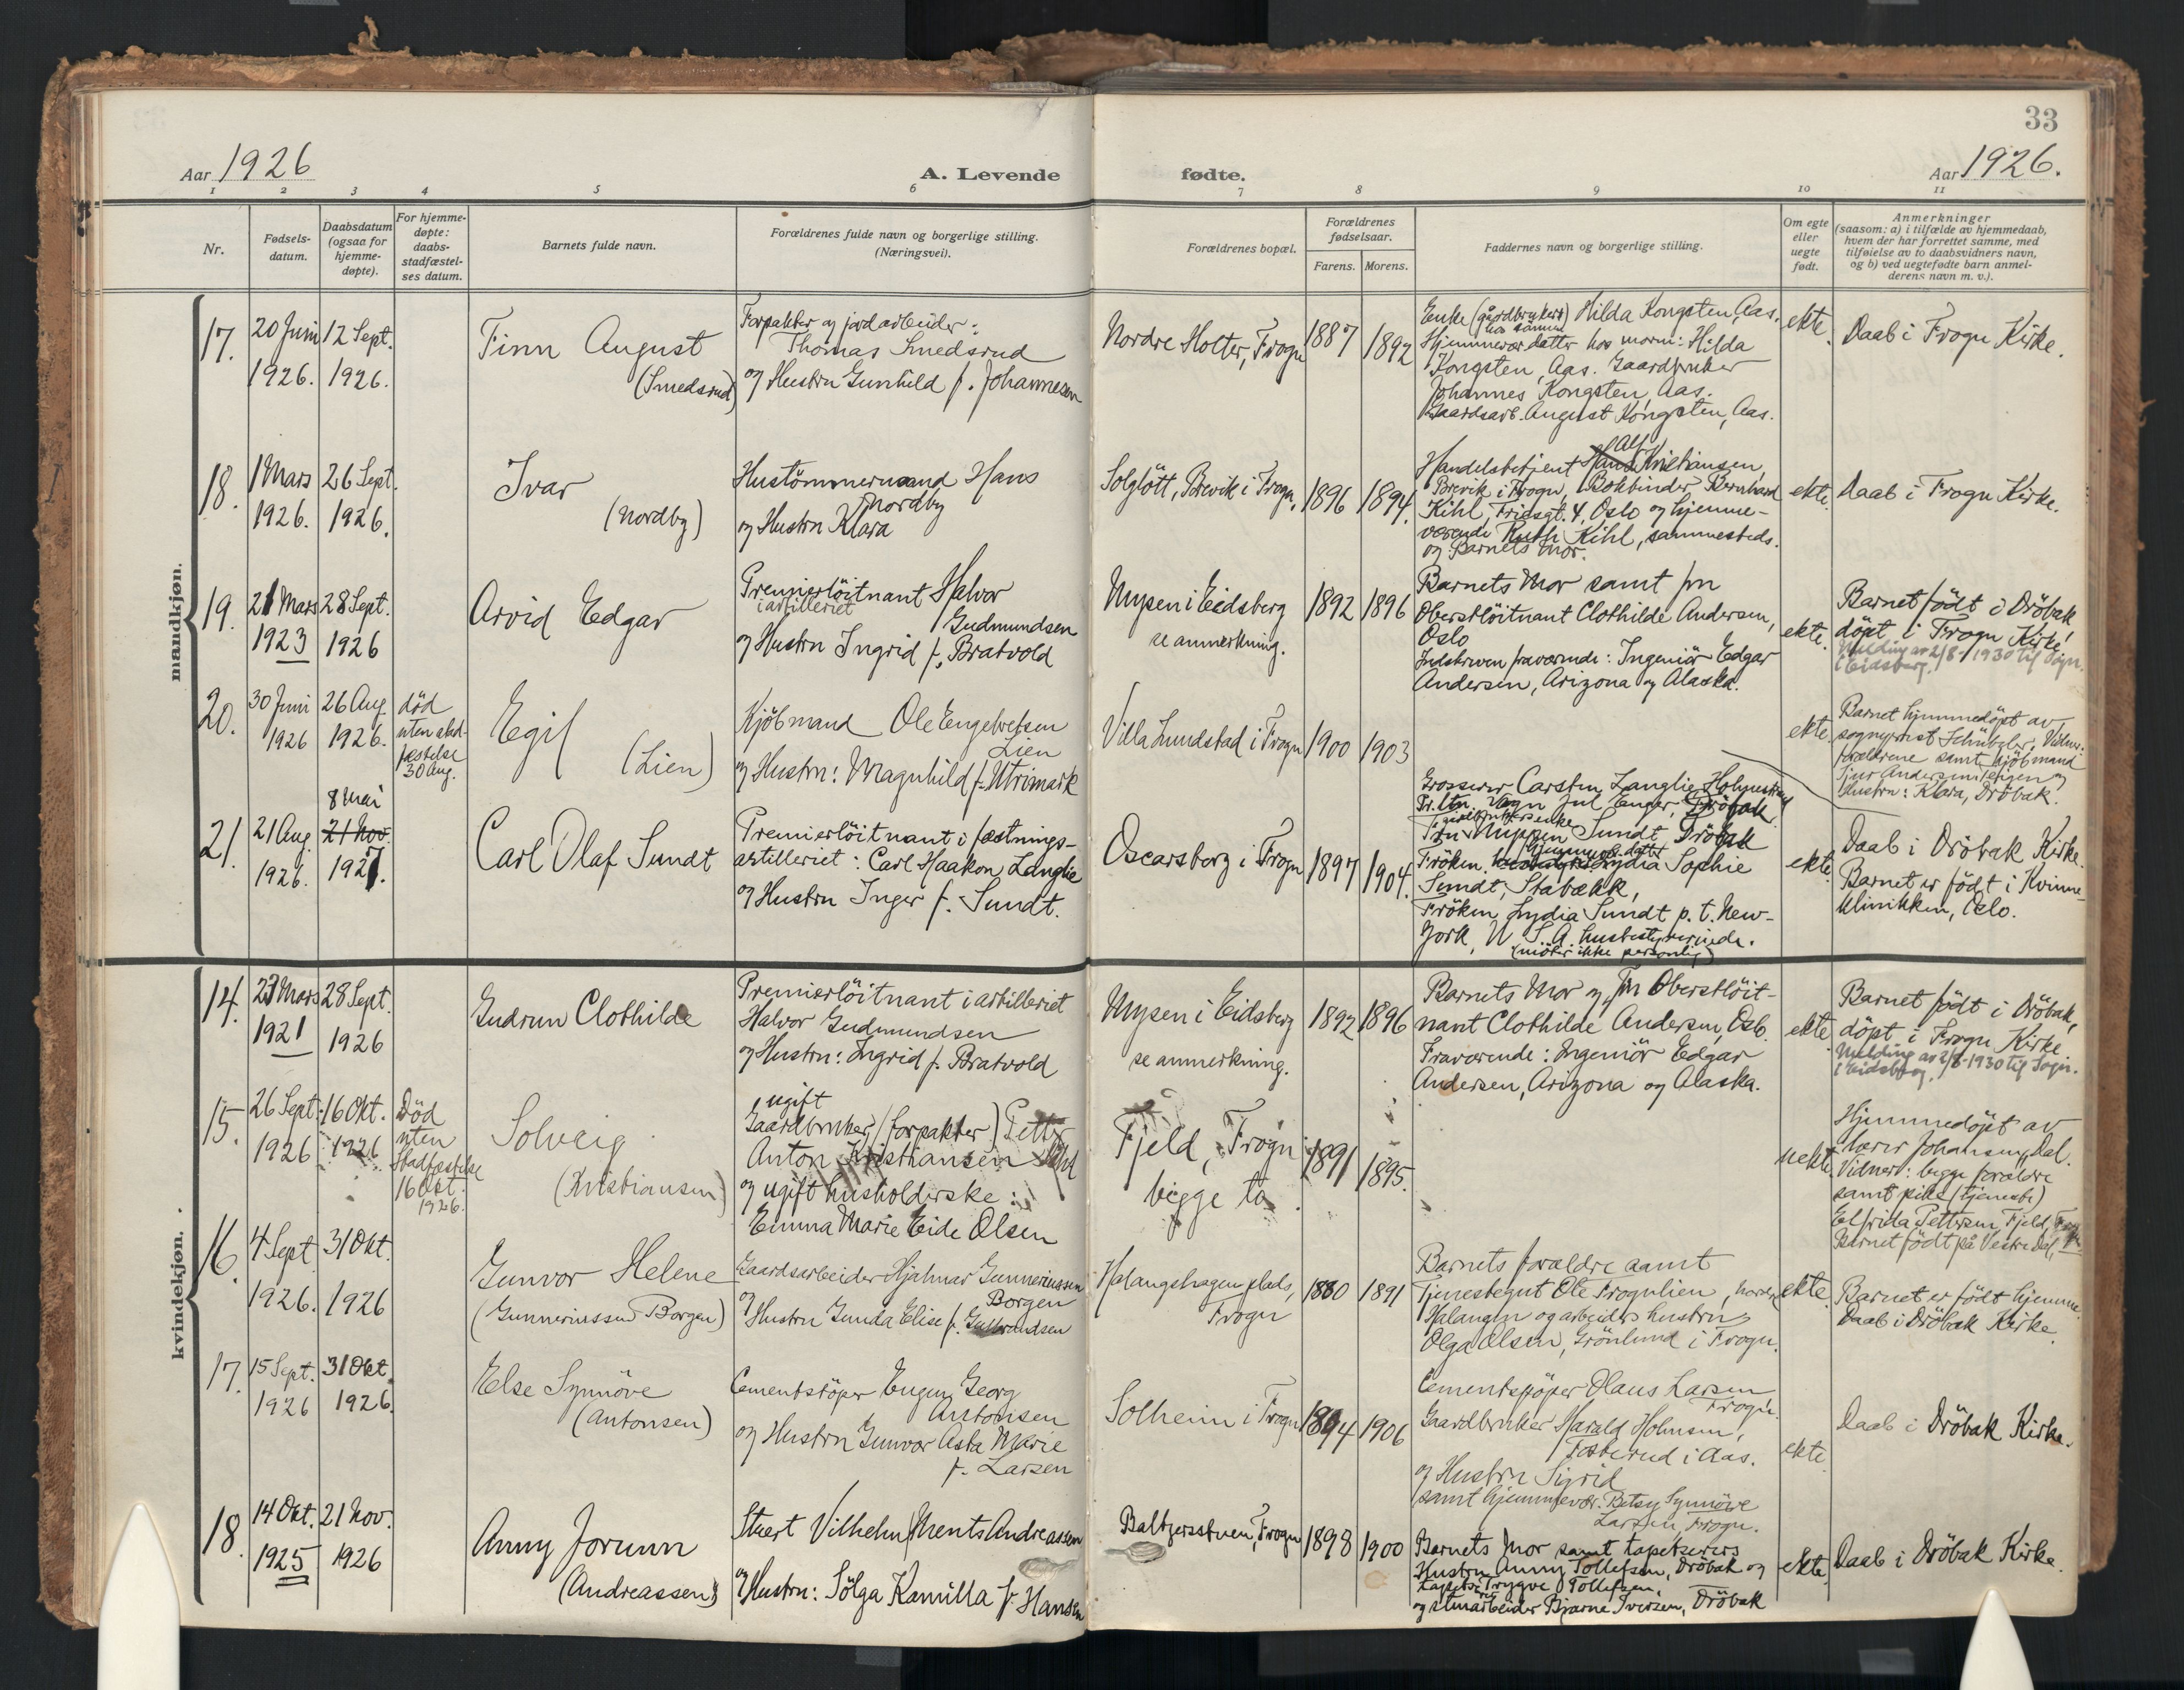 33
Aar 1926
A. Levende
fødte.
Aar 1926.
1 2 3 4 5 6 7 8 9 10 11
Nr.
Fødsels-
datum.
Daabsdatum
(ogsaa for
hjemme-
døpte).
For hjemme-
døpte:
daabs-
stadfæstel-
ses datum.
Barnets fulde navn.
Forældrenes fulde navn og borgerlige stilling.
(Næringsvei).
Forældrenes bopæl.
Forældrenes
fødselsaar.
Farens. Morens.
Faddernes navn og borgerlige stilling.
Om egte
eller
uegte
født.
Anmerkninger
(saasom: a) i tilfælde av hjemmedaab,
hvem der har forrettet samme, med
tilføielse av to daabsvidners navn,
og b) ved uegtefødte barn anmel-
derens navn m. v.).
mandkjøn.
17.
20 Juni
1926.
12 Sept.
1926.
Finn August
(Smedsrud)
Forpakter og jordarbeider:
Thomas Smedsrud
og Hustru Gunhild f. Johannesen
Nordre Holter, Frogn
1887
1892
Enke (gårdbrukers) Hilda Kongsten, Aas.
hos sönnen
Hjemmevær. datter hos moren: Hilda
Kongsten, Aas. Gaardbruker
Johannes Kongsten, Aas.
Gaardsarb. August Kongsten, Aas.
ekte.
Daab i Frogn Kirke.
18.
1 Mars
1926.
26 Sept.
1926.
Ivar
(Nordby)
Hustömmermand Hans
Nordby
og Hustru Klara
Solglött, Brevik i Frogn.
1896
1894.
Alf
Handelsbetjent Hans Kristiansen,
Brevik i Frogn, Bokbinder Bernhard
Kihl, Friesgt. 4, Oslo og hjemme-
værende Ruth Kihl, sammesteds.
og Barnets Mor.
ekte.
Daab i Frogn Kirke.
19.
21 Mars
1923
28 Sept.
1926
Arvid Edgar
Premierlöitnant Halvor
i artilleriet
Gudmundsen
og Hustru Ingrid f. Bratvold
Mysen i Eidsberg
se anmerkning.
1892
1896
Barnets Mor samt fru
Oberstlöitnant Clothilde Andersen,
Oslo
Indskreven fraværende: Ingeniör Edgar
Andersen, Arizona og Alaska.
ekte.
Barnet födt i Dröbak,
döpt i Frogn Kirke.
Melding av 2/8-1930 til Sogn.
i Eidsberg.
20.
30 Juni
1926
26 Aug.
1926.
död
uten stad-
fæstelse
30 Aug.
Egil
(Lien)
Kjöbmand Ole Engebretsen
Lien
og Hustru: Magnhild f. Utrimark
Villa Lundstad i Frogn
1900
1903
ekte.
Barnet hjemmedöpt av
sogneprest Schübeler. Vidner:
forældrene samt kjöbmand
Andersen
Hustru: Klara, Dröbak.
21.
21 Aug.
1926.
8 Mai
21 Nov.
1927.
Carl Olaf Sundt
Premierlöitnant i fæstnings-
artilleriet: Carl Haakon Langlie
og Hustru Inger f. Sundt.
Oscarsborg i Frogn
1897
1904.
Grosserer Carsten Langlie, Holmestrand
Pr. ltn. Vagn Jul Enger, Dröbak
Fru Sundt, Dröbak
Fröken hjemmev. datter Lydia Sophie
Sundt, Stabækk,
Fröken Lydia Sundt p. t. New-
York, U. S. A. husbestyrerinde.
(möter ikke personlig)
ekte.
Daab i Dröbak Kirke.
Barnet er födt i Kvinne-
klinikken, Oslo.
kvindekjøn.
14.
23 Mars
1921
28 Sept.
1926
Gudrun Clothilde
Premierlöitnant i artilleriet
Halvor Gudmundsen
og Hustru: Ingrid f. Bratvold
Mysen i Eidsberg
se anmerkning.
1892
1896
Barnets Mor og fru Oberstlöit-
nant Clothilde Andersen, Oslo.
Fraværende: Ingeniör Edgar
Andersen, Arizona og Alaska.
ekte.
Barnet födt i Dröbak,
döpt i Frogn Kirke
Melding av 2/8-1930 til Sogn.
i Eidsberg.
15.
26 Sept.
1926
16 Okt.
1926
Död
uten
Stadfæstelse
16 Okt.
1926.
Solveig
(Kristiansen)
ugift
Gaardbruker, (forpakter) Petter
Anton Kristiansen
og ugift husholderske:
Emma Marie Eide Olsen
Fjeld, Frogn
begge to
1891
1895.
uekte.
Hjemmedöpt av
lærer Johansen, Dal.
Vidner: begge forældre
samt pike (tjeneste)
Elfrida Pettersen, Fjeld,
Barnet födt på Vestre Dal,
16.
4 Sept.
1926.
31 Okt.
1926
Gunvor Helene
(Gunneriussen Borgen)
Gaardsarbeider Hjalmar Gunneriussen
Borgen
og Hustru Gunda Elise f. Gulbrandsen
Halangshagen plads,
Frogn
1880
1891
Barnets forældre samt
Tjenestegut Ole Frognlien, nordre
Halangen og arbeiders hustru
Olga Olsen, Grönlund i Frogn.
ekte.
Barnet er födt hjemme.
Daab i Dröbak Kirke.
17.
15 Sept.
1926
31 Okt.
1926.
Else Synnöve
(Antonsen)
Cementstöper Eugen Georg
Antonsen
og Hustru Gunvor Asta Marie
f. Larsen
Solheim i Frogn
1894
1906
Cementstöper Olaus Larsen
Frogn.
Gaardbruker Harald Holmsen,
Fosterud i Aas.
og Hustru Sigrid
samt hjemmevær. Betsy Synnöve
Larsen, Frogn.
ekte.
Daab i Dröbak Kirke.
18.
14 Okt.
1925
21 Nov.
1926
Anny Jorunn
(Andreassen)
Stuert Vilhelm Ments Andreassen
og Hustru: Sölga Kamilla f. Hansen
Baltzersstuen, Frogn
1898
1900
Barnets Mor samt tapetserers
Hustru Anny Tollefsen, Dröbak og
tapetserer Trygve Tollefsen,
og stenarbeider Bjarne Iversen, Dröbak
ekte.
Daab i Dröbak Kirke.